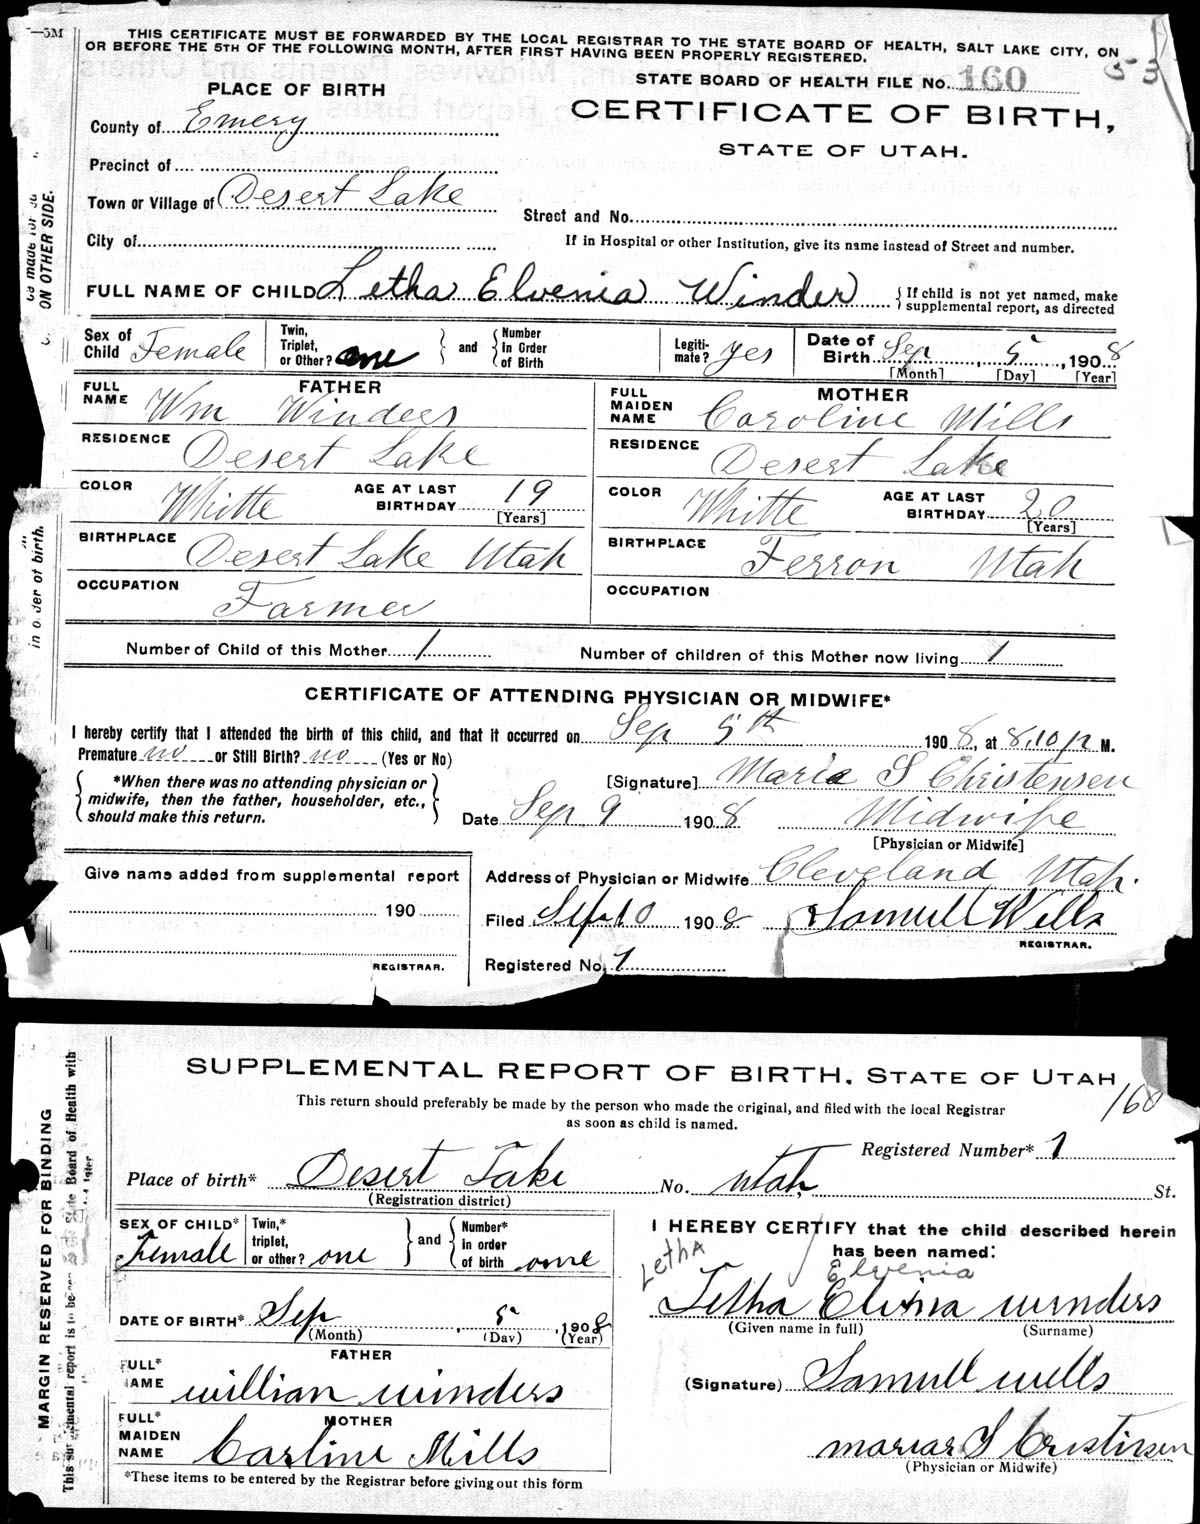 —5M
THIS CERTIFICATE MUST BE FORWARDED BY THE LOCAL REGISTRAR TO THE STATE BOARD OF HEALTH, SALT LAKE CITY, ON
OR BEFORE THE 5TH OF THE FOLLOWING MONTH, AFTER FIRST HAVING BEEN PROPERLY REGISTERED.
53
STATE BOARD OF HEALTH FILE No. 160
PLACE OF BIRTH
CERTIFICATE OF BIRTH,
STATE OF UTAH.
County of Emery
Precinct of
Town or Village of Desert Lake
Street and No.
City of
If in Hospital or other Institution, give its name instead of Street and number.
ON OTHER SIDE.
FULL NAME OF CHILD Letha Elvenia Winder
If child is not yet named, make
supplemental report, as directed
Sex of Child Female Twin, Triplet, or Other? one and Number in Order of Birth Legiti-mate? yes Date of Birth Sep 5, 1908
[Month] [Day] [Year]
FATHER
FULL NAME Wm Winders
RESIDENCE Desert Lake
COLOR Whitte AGE AT LAST BIRTHDAY 19
[Years]
BIRTHPLACE Desert Lake Utah
OCCUPATION Farmer
MOTHER
FULL MAIDEN NAME Caroline Mills
RESIDENCE Desert Lake
COLOR Whitte AGE AT LAST BIRTHDAY 20
[Years]
BIRTHPLACE Ferron Utah
OCCUPATION
in order of birth.
Number of Child of this Mother 1 Number of children of this Mother now living 1
CERTIFICATE OF ATTENDING PHYSICIAN OR MIDWIFE*
I hereby certify that I attended the birth of this child, and that it occurred on Sep 5th 1908, at 8.10 P M.
Premature no or Still Birth? no (Yes or No)
*When there was no attending physician or
midwife, then the father, householder, etc.,
should make this return.
[Signature] Maria S Christensen
Date Sep 9 1908 Midwife
[Physician or Midwife]
Give name added from supplemental report
190
REGISTRAR.
Address of Physician or Midwife Cleveland Utah.
Filed Sep 10 1908 Samuell Wells
REGISTRAR.
Registered No. 1
SUPPLEMENTAL REPORT OF BIRTH, STATE OF UTAH
160
This return should preferably be made by the person who made the original, and filed with the local Registrar
as soon as child is named.
Registered Number* 1
Place of birth* Desert Lake No. Utah St.
(Registration district)
MARGIN RESERVED FOR BINDING
SEX OF CHILD* Female Twin,* triplet, or other? one and Number* in order of birth one
DATE OF BIRTH* Sep 5, 1908
(Month) (Day) (Year)
FATHER
FULL* NAME willian winders
MOTHER
FULL* MAIDEN NAME Carline Mills
*These items to be entered by the Registrar before giving out this form
I HEREBY CERTIFY that the child described herein
has been named:
Letha
Elvenia
Letha Elvina winders
(Given name in full) (Surname)
(Signature) Samull wells
mariar S Cristinsen
(Physician or Midwife)